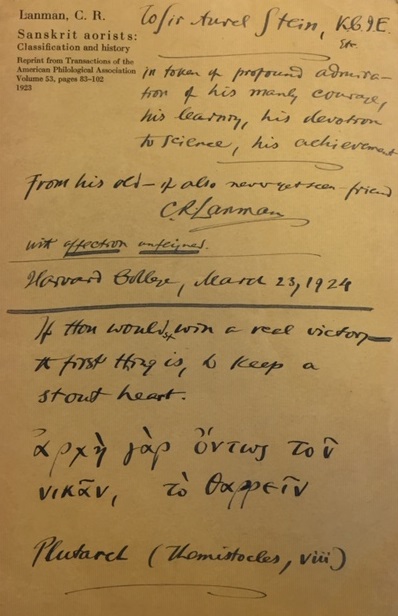 Lanman, C. R.
Sanskrit aorists:
Classification and history
Reprint from Transactions of the
American Philological Association
Volume 53, pages 83–102
1923
To Sir Aurel Stein, K.C.I.E.
etc.
in token of profound admira-
tion of his manly courage,
his learning, his devotion
to science, his achievement
From his old – if also never yet seen – friend
C. R. Lanman
with affection unfeigned.
Harvard College, March 23, 1924
If thou wouldst win a real victory
the first thing is, to keep a
stout heart.
ἀρχὴ γὰρ ὄντως τοῦ
νικᾶν, τὸ θαρρεῖν
Plutarch (Themistocles, viii)